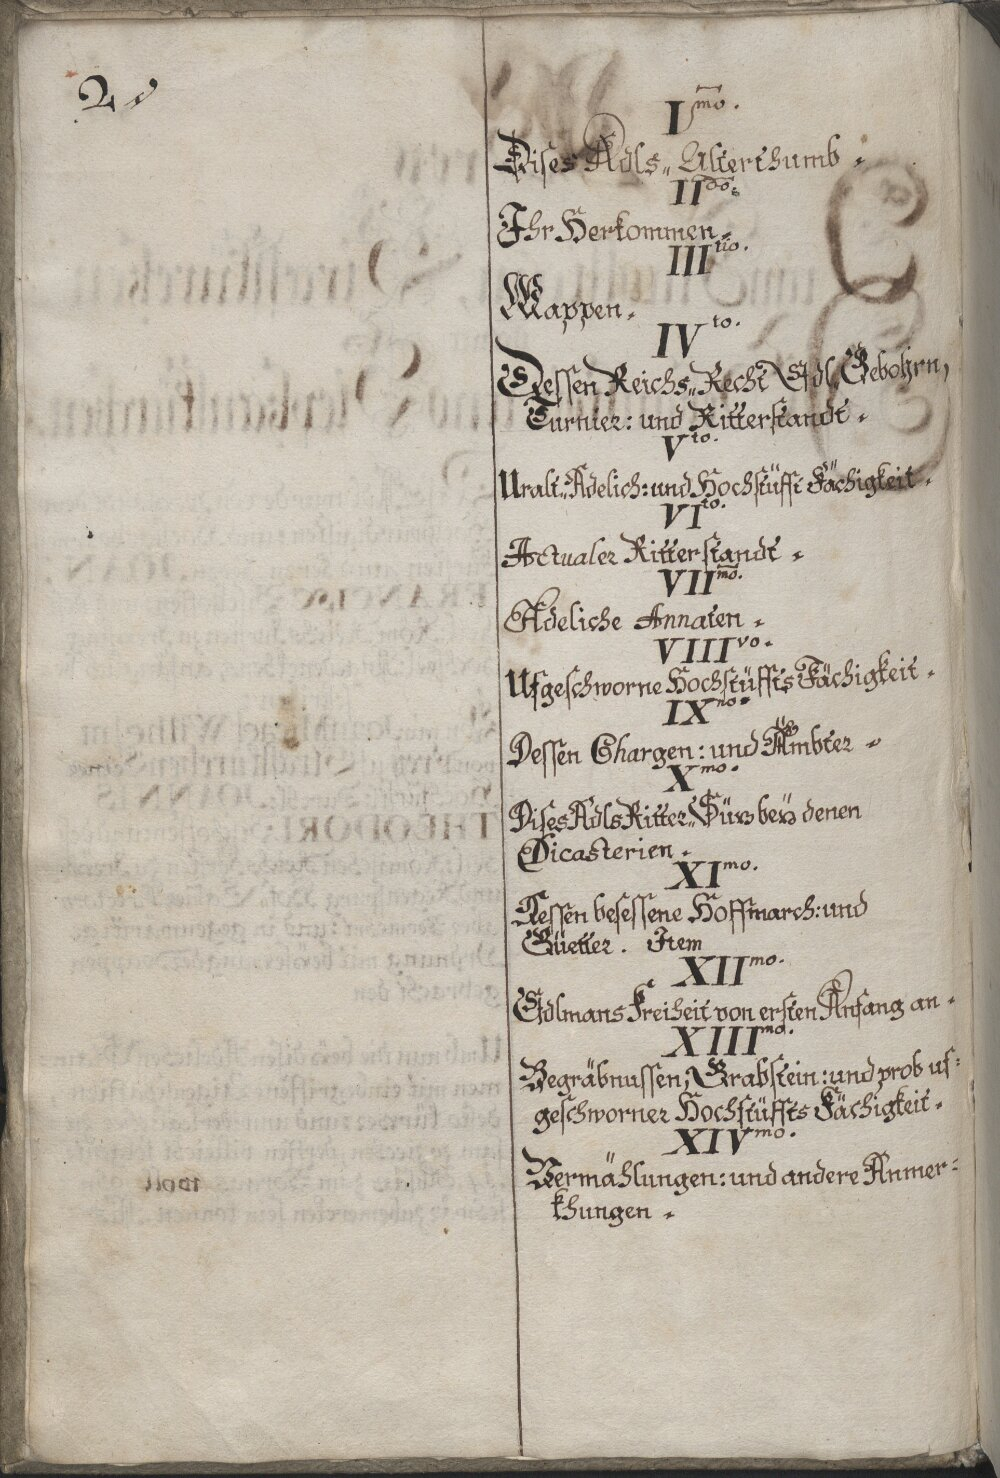 2
I^mo.
Dises Adls„ Alterthumb.
II^do.
Ihr Herkommen.
III^tio.
Wappen.
IV^to.
Dessen Reichs„ Recht Edl Gebohrn,
Turnier: und Ritterstandt.
V^to.
Uralt„ Adelich: und Hochstüfft Fächigkeit.
VI^to.
Actualer Ritterstandt.
VII^mo.
Adeliche Annaten.
VIII^vo.
Ufgeschworne Hochstüffts Fächigkeit.
IX^no.
Dessen Chargen: und Ämbter.
X^mo.
Dises Adls Ritter„ bey denen
Dicasterien.
XI^mo.
Dessen besessene Hoffmarch: und
Güetter. Item
XII^mo.
Edlmans Freiheit von ersten Anfang an.
XIII^mo.
Begräbnussen, Grabstein: und prob uf=
geschworner Hochstüffts Fächigkeit.
XIV^mo.
Vermählungen: und andere Anmer=
khungen.